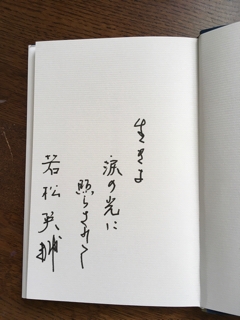 生きる
涙の光に
照らされて
若松英輔